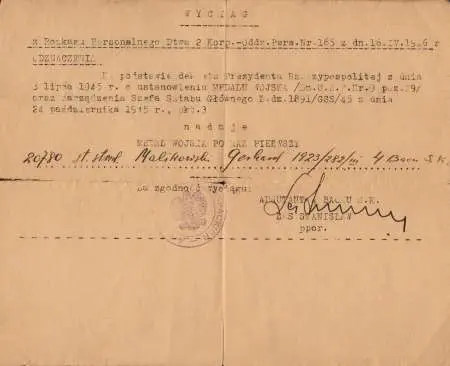 W Y C I Ą G
z Rozkazu Personalnego Dtwa 2 Korp.-Oddz.Pers.Nr.165 z dn.16.IV.1946 r
ODZNACZENIA.
Na podstawie dekretu Prezydenta Rzeczypospolitej z dnia
3 lipca 1945 r o ustanowieniu MEDALU WOJSKA /Dz.U.R.P.Nr.9 poz.29/
oraz zarządzenia Szefa Sztabu Głównego L.dz.1891/GSS/45 z dnia
24 października 1945 r, pkt.3
n a d a j e
MEDAL WOJSKA PO RAZ PIERWSZY
20780 st. strzel. Malikowski Gerhard 1923/282/III 4 Baon S.K.
Za zgodność wyciągu:
ADIUTANT 4 BAONU S.K.
STANISŁAW
ppor.